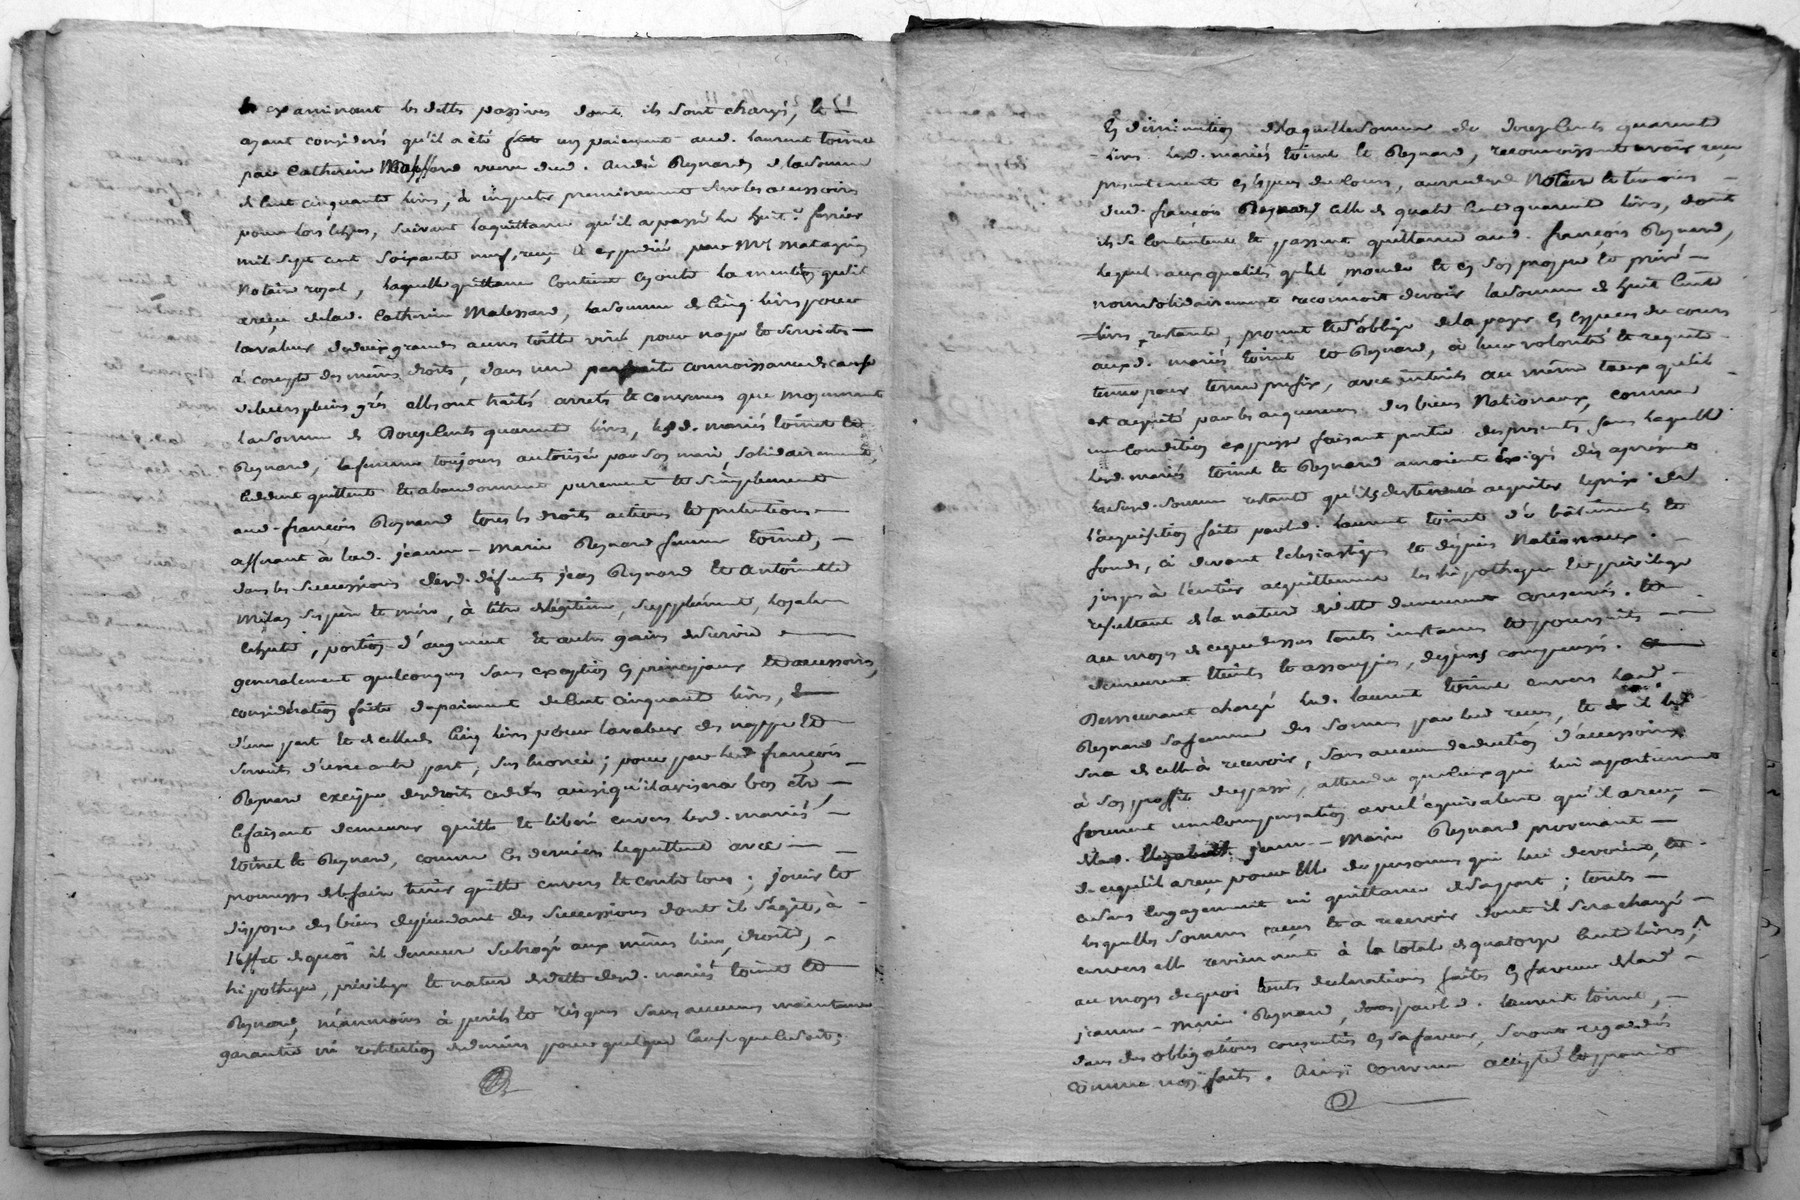 examinant les dettes passives dont ils sont chargés, et
ayant considerés qu'il a été fait un paiement aud. laurent toinet
par Catherine veuve dud. André Reynard, de la somme
de cent cinquante livres, à imputer premierement sur les accessoires
pour lors échus, suivant la quittance qu'il a passé le huit fevrier
mil sept cent soixante neuf, reçue et expediée par Me Matagrin
Notaire royal, laquelle quittance contient en outre la mention qu'il
a reçu de lad. Catherine Malessard, la somme de cinq livres pour
la valeur de deux grandes aunes toille pour nape et serviettes
à compte des mêmes droits, dans une parfaite connoissance de cause
de leurs pleins grés elles ont traité arreté et convenues que moyennant
la somme de Douze Cents quarente livres, lesd. mariés toinet et
Reynard, la femme toujours autorisée par son mari solidairement,
cedent quittent et abandonnent purement et simplement
aud. françois Reynard tous les droits actions et pretentions
afferant à lad. jeanne-Marie Reynard femme toinet,
dans les successions desd. défunts jean Reynard et Antoinette
ses père et mère, à titre de légitime, supplément, hoyale
echute, portion d'augment et autres gains de survie
generalement quelconques sans exception en principaux et accessoires,
considération faite du paiement de cent cinquante livres,
d'une part et de celle de cinq livres pour la valeur des nappe et
serviets d'une autre part, sus énoncé; pour par led. françois
Reynard exciper des droits cedés ainsi qu'il avisera bon être,
le faisant demeurer quitte et liberé envers lesd. mariés
toinet et Reynard, comme ces derniers le quittent avec
promesse de le faire tenir quitte envers et contre tous; jouir et
disposer des biens dependant des successions dont il s'agit, à
l'effet de quoi il demeure subrogé aux mêmes lieu, droits,
hipotheque, privilege et nature de dette desd. mariés toinet et
Reynard, néanmoins à perils et risques sans aucune maintenue
garantie ni restitution de deniers pour quelque cause que ce soit;
En diminution de laquelle somme de douze cents quarente
livres lesd. mariés toinet et Reynard, reconnoissent avoir reçu
presentement en especes de cours, au vu de Notaire et temoins
dud. françois Reynard celle de quatre cent quarente livres, dont
ils se contentent et passent quittance aud. françois Reynard,
lequel aux qualités qu'il procede et en son propre et privé
nom solidairement reconnoit devoir la somme de huit cents
livres, restante, promet et s'oblige de la payer en especes de cours
auxd. mariés toinet et Reynard, à leur volonté et requete
tenue pour terme prefix, avec intérêts au même taux qu'il
est aquité par les acquereurs des biens Nationaux, comme
une condition expresse faisant partie des presents sans laquelle
lesd. mariés toinet et Reynard auroient éxigés dès apresent
la susd. somme restante qu'ils destinent à aquiter le prix de
l'acquisition faite par led. laurent toinet de bâtiments et
fonds, ci devant Eclesiastiques et depuis Nationaux.
jusques à l'entier acquittement les hipotheque et privilege
resultant de la nature de dette demeurent conservés. et
au moyen de ce que dessus touts instances et poursuits
demeurent éteints et assoupies, depens compensés.
Demeurant chargé led. laurent toinet envers lad.
Reynard sa femme des sommes par led. reçues, et il
sera de celle à recevoir, sans aucune deduction d'accessoires
à son proffit du passé, attendu que ceux qui lui apartiennent
forment une compensation avec l'equivalent qu'il a reçu,
de lad. jeanne-Marie Reynard provenant
de ce qu'il a reçu pour elle de personnes qui lui devoient, et
ce sans engagement ni quittance de sa part; touts
lesquelles sommes reçues et a recevoir dont il sera chargé
envers elle reviennent à la total de quatorze cents livres;
au moyen de quoi touts declarations faites en faveur de lad.
jeanne-Marie Reynard, par led. laurent toinet,
dans des obligations consenties en sa faveur, seront regardés
comme non faits. Ainsi convenu accepté et promis